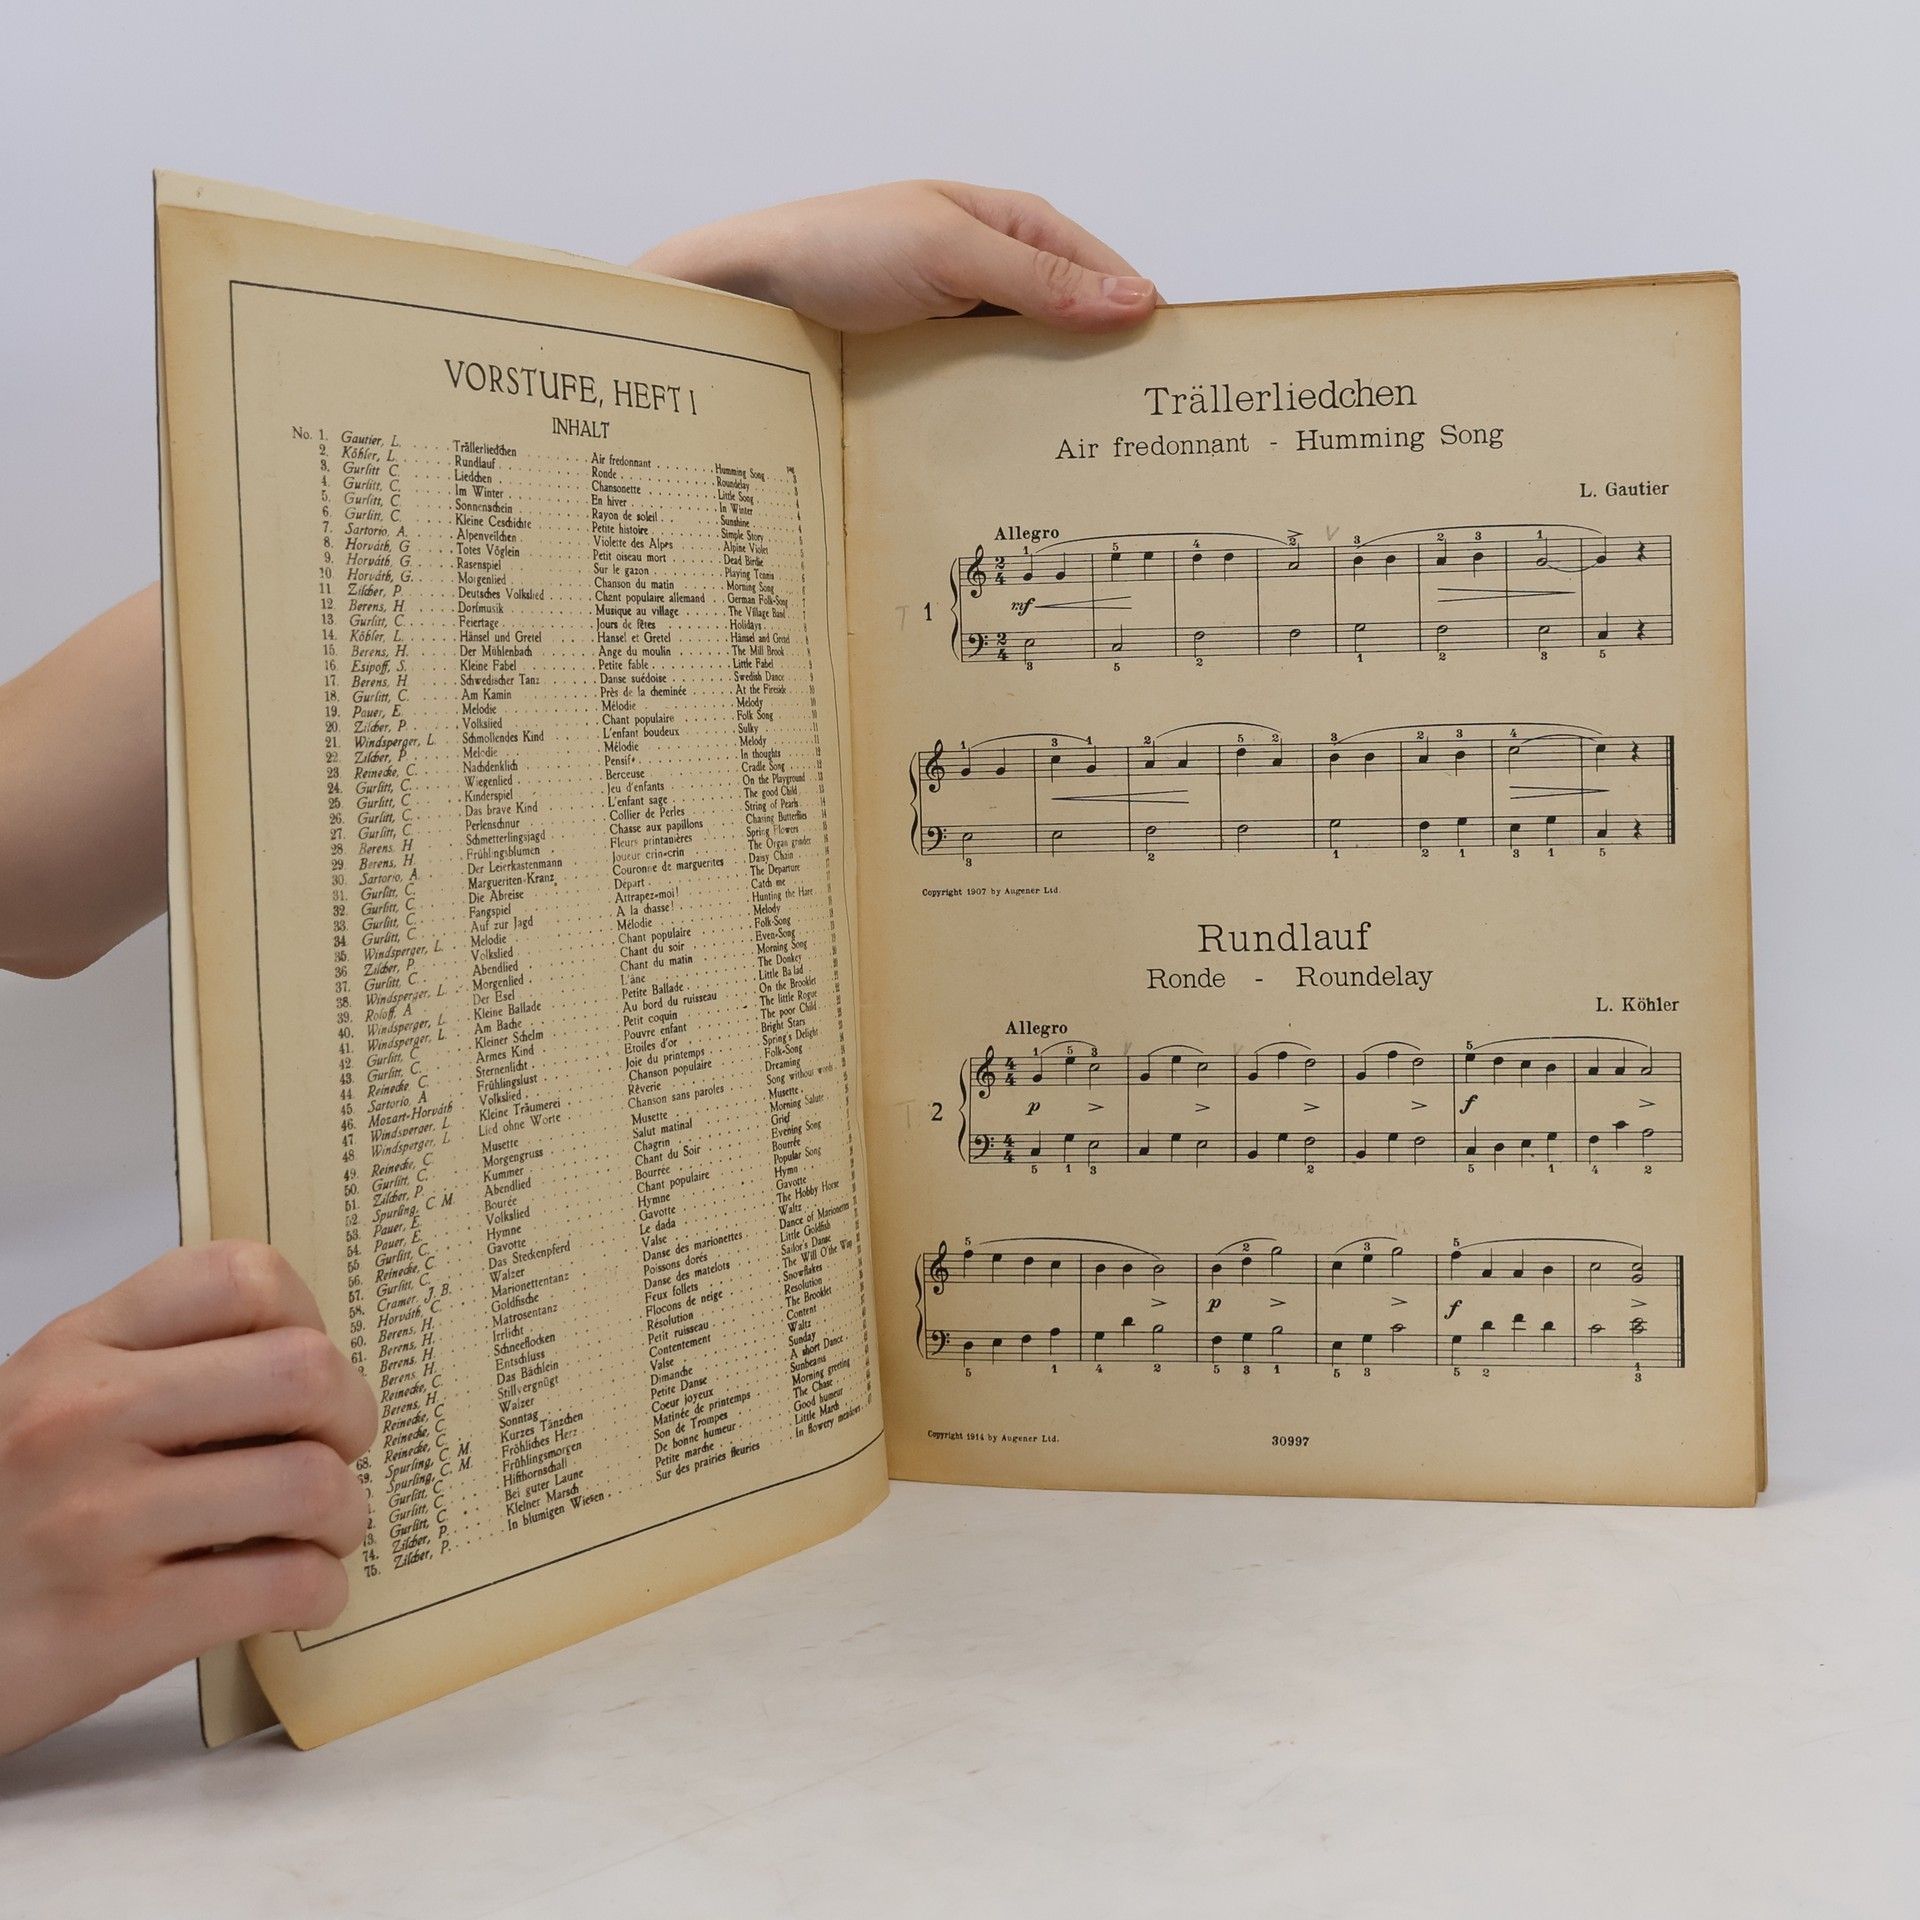 VORSTUFE, HEFT I
INHALT
No. 1. Gautier, L. Trällerliedchen Air fredonnant Humming Song 3
2. Köhler, L. Rundlauf Ronde Roundelay 3
3. Gurlitt C. Liedchen Chansonette Little Song
4. Gurlitt, C. Im Winter En hiver In Winter
5. Gurlitt, C. Sonnenschein Rayon de soleil Sunshine
6. Gurlitt, C. Kleine Geschichte Petite histoire Simple Story
7. Sartorio, A. Alpenveilchen Violette des Alpes Alpine Violet
8. Horváth, G Totes Vöglein Petit oiseau mort Dead Birdie
9. Horváth, G. Rasenspiel Sur le gazon Playing Tennis
10. Horváth, G. Morgenlied Chanson du matin Morning Song
11. Zilcher, P. Deutsches Volkslied Chant populaire allemand German Folk-Song
12. Berens, H Dorfmusik Musique au village The Village Band
13. Gurlitt, C. Feiertage Jours de fêtes Holidays
14. Köhler, L. Hänsel und Gretel Hansel et Gretel Hänsel and Gretel
15. Berens, H. Der Mühlenbach Ange du moulin The Mill Brook
16. Esipoff, S. Kleine Fabel Petite fable Little Fabel
17. Berens, H Schwedischer Tanz Danse suédoise Swedish Dance
18. Gurlitt, C. Am Kamin Près de la cheminée At the Fireside
19. Pauer, E. Melodie Mélodie Melody
20. Zilcher, P. Volkslied Chant populaire Folk Song
21. Windsperger, L. Schmollendes Kind L'enfant boudeux Sulky
22. Zilcher, P. Melodie Mélodie Melody
23. Reinecke, C. Nachdenklich Pensif In thoughts
24. Gurlitt, C. Wiegenlied Berceuse Cradle Song
25. Gurlitt, C Kinderspiel Jeu d'enfants On the Playground
26. Gurlitt, C. Das brave Kind L'enfant sage The good Child
27. Gurlitt, C. Perlenschnur Collier de Perles String of Pearls
28. Berens H Schmetterlingsjagd Chasse aux papillons Chasing Butterflies
29. Berens, H. Frühlingsblumen Fleurs printanières Spring Flowers
30. Sartorio, A. Der Leierkastenmann Joueur crin-crin The Organ grinder
31. Gurlitt, C. Margueriten-Kranz Couronne de marguerites Daisy Chain
32. Gurlitt, C. Die Abreise Départ The Departure
33. Gurlitt, C. Fangspiel Attrapez-moi! Catch me
34. Gurlitt, C. Auf zur Jagd A la chasse! Hunting the Hare
35. Windsperger, L. Melodie Mélodie Melody
36 Zilcher, P. Volkslied Chant populaire Folk-Song
37. Gurlitt, C. Abendlied Chant du soir Even-Song
38. Windsperger, L. Morgenlied Chant du matin Morning Song
39. Roloff, A Der Esel L'âne The Donkey
40. Windsperger, L. Kleine Ballade Petite Ballade Little Ballad
41. Windsperger, L. Am Bache Au bord du ruisseau On the Brooklet
42. Gurlitt, C Kleiner Schelm Petit coquin The little Rogue
43. Gurlitt, C. Armes Kind Pouvre enfant The poor Child
44. Reinecke, C. Sternenlicht Etoiles d'or Bright Stars
45. Sartorio, A Frühlingslust Joie du printemps Spring's Delight
46. Mozart-Horváth Volkslied Chanson populaire Folk-Song
47. Windsperger, L. Kleine Träumerei Rêverie Dreaming
48. Windsperger, L Lied ohne Worte Chanson sans paroles Song without words
49. Reinecke, C. Musette Musette Musette
50. Gurlitt, C. Morgengruss Salut matinal Morning Salute
51. Zilcher, P. Kummer Chagrin Grief
52. Spurling, C. M. Abendlied Chant du Soir Evening Song
53. Pauer, E. Bourée Bourrée Bourrée
54. Pauer, E. Volkslied Chant populaire Popular Song
55. Gurlitt, C. Hymne Hymne Hymn
56. Reinecke, C. Gavotte Gavotte Gavotte
57. Gurlitt, C. Das Steckenpferd Le dada The Hobby Horse
58. Cramer, J. B. Walzer Valse Waltz
59. Horváth, C. Marionettentanz Danse des marionettes Dance of Marionettes
60. Berens, H. Goldfische Poissons dorés Little Goldfish
61. Berens, H. Matrosentanz Danse des matelots Sailor's Danse
Berens, H. Irrlicht Feux follets The Will O'the Wisp
Berens, H. Schneeflocken Flocons de neige Snowflakes
Reinecke, C. Entschluss Résolution Resolution
Berens, H. Das Bächlein Petit ruisseau The Brooklet
Reinecke, C. Stillvergnügt Contentement Content
Reinecke, C. Walzer Valse Waltz
68. Reinecke, C. Sonntag Dimanche Sunday
69. Spurling, C. M. Kurzes Tänzchen Petite Danse A short Dance
Spurling, C. M. Fröhliches Herz Coeur joyeux Sunbeams
Gurlitt, C. Frühlingsmorgen Matinée de printemps Morning greeting
2. Gurlitt, C. Hifthornschall Son de Trompes The Chase
73. Gurlitt, C. Bei guter Laune De bonne humeur Good humeur
74. Zilcher, P. Kleiner Marsch Petite marche Little March
75. Zilcher, P. In blumigen Wiesen Sur des prairies fleuries In flowery meadows
Trällerliedchen
Air fredonnant - Humming Song
L. Gautier
Allegro
1
mf
Copyright 1907 by Augener Ltd.
Rundlauf
Ronde - Roundelay
L. Köhler
Allegro
2
p f
p f
Copyright 1914 by Augener Ltd.
30997